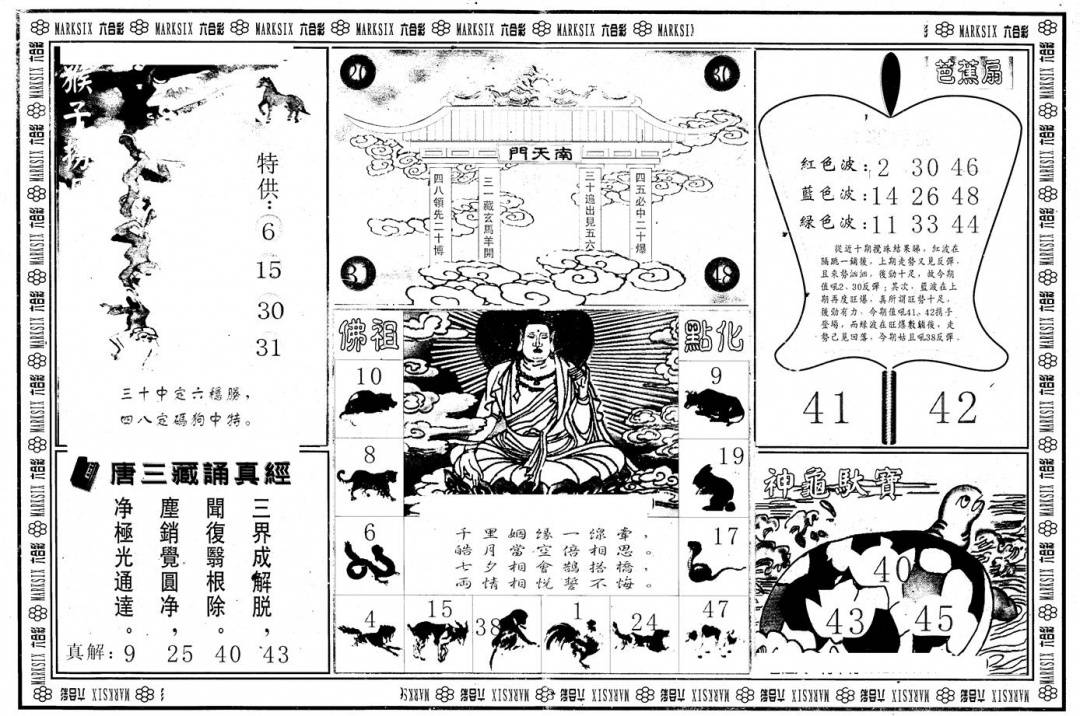 MARKSIX 六合彩 MARKSIX 六合彩 MARKSIX 六合彩 MARKSIX 六合彩 MARKSIX 六合彩 MARKSIX 六合彩 MARKSIX
MARKSIX 六合彩 MARKSIX 六合彩
猴子
特供:
6
15
30
31
三十中定六穩勝,
四八定碼狗中特。
唐三藏誦真經
三界成解脱,
聞復翳根除。
塵銷覺圓净,
净極光通達。
真解:9 25 40 43
30
南天門
四五必中二十爆
三十追出見五六
三一藏玄馬羊開
四八領先二十博
佛祖
點化
10
9
8
19
6
17
千里姻缘一線牽,
皓月當空倍相思。
七夕相會鵲搭橋,
両情相悦誓不悔。
4
15
38
1
24
47
芭蕉扇
红色波:2 30 46
藍色波:14 26 48
绿色波:11 33 44
從近十期攪珠結果睇,紅波在
隔跳一鋪後,上期走勢又見反彈,
且來勢汹汹,後勁十足,故今期
值吼2、30反彈;其次,藍波在上
期再度旺爆,真所謂旺勢十足,
後勁有力,今期值吼41、42携手
登場,而緑波在旺爆數鋪後,走
勢已見回落,今期姑且吼38反彈.
41
42
神龜馱寶
40
43
45